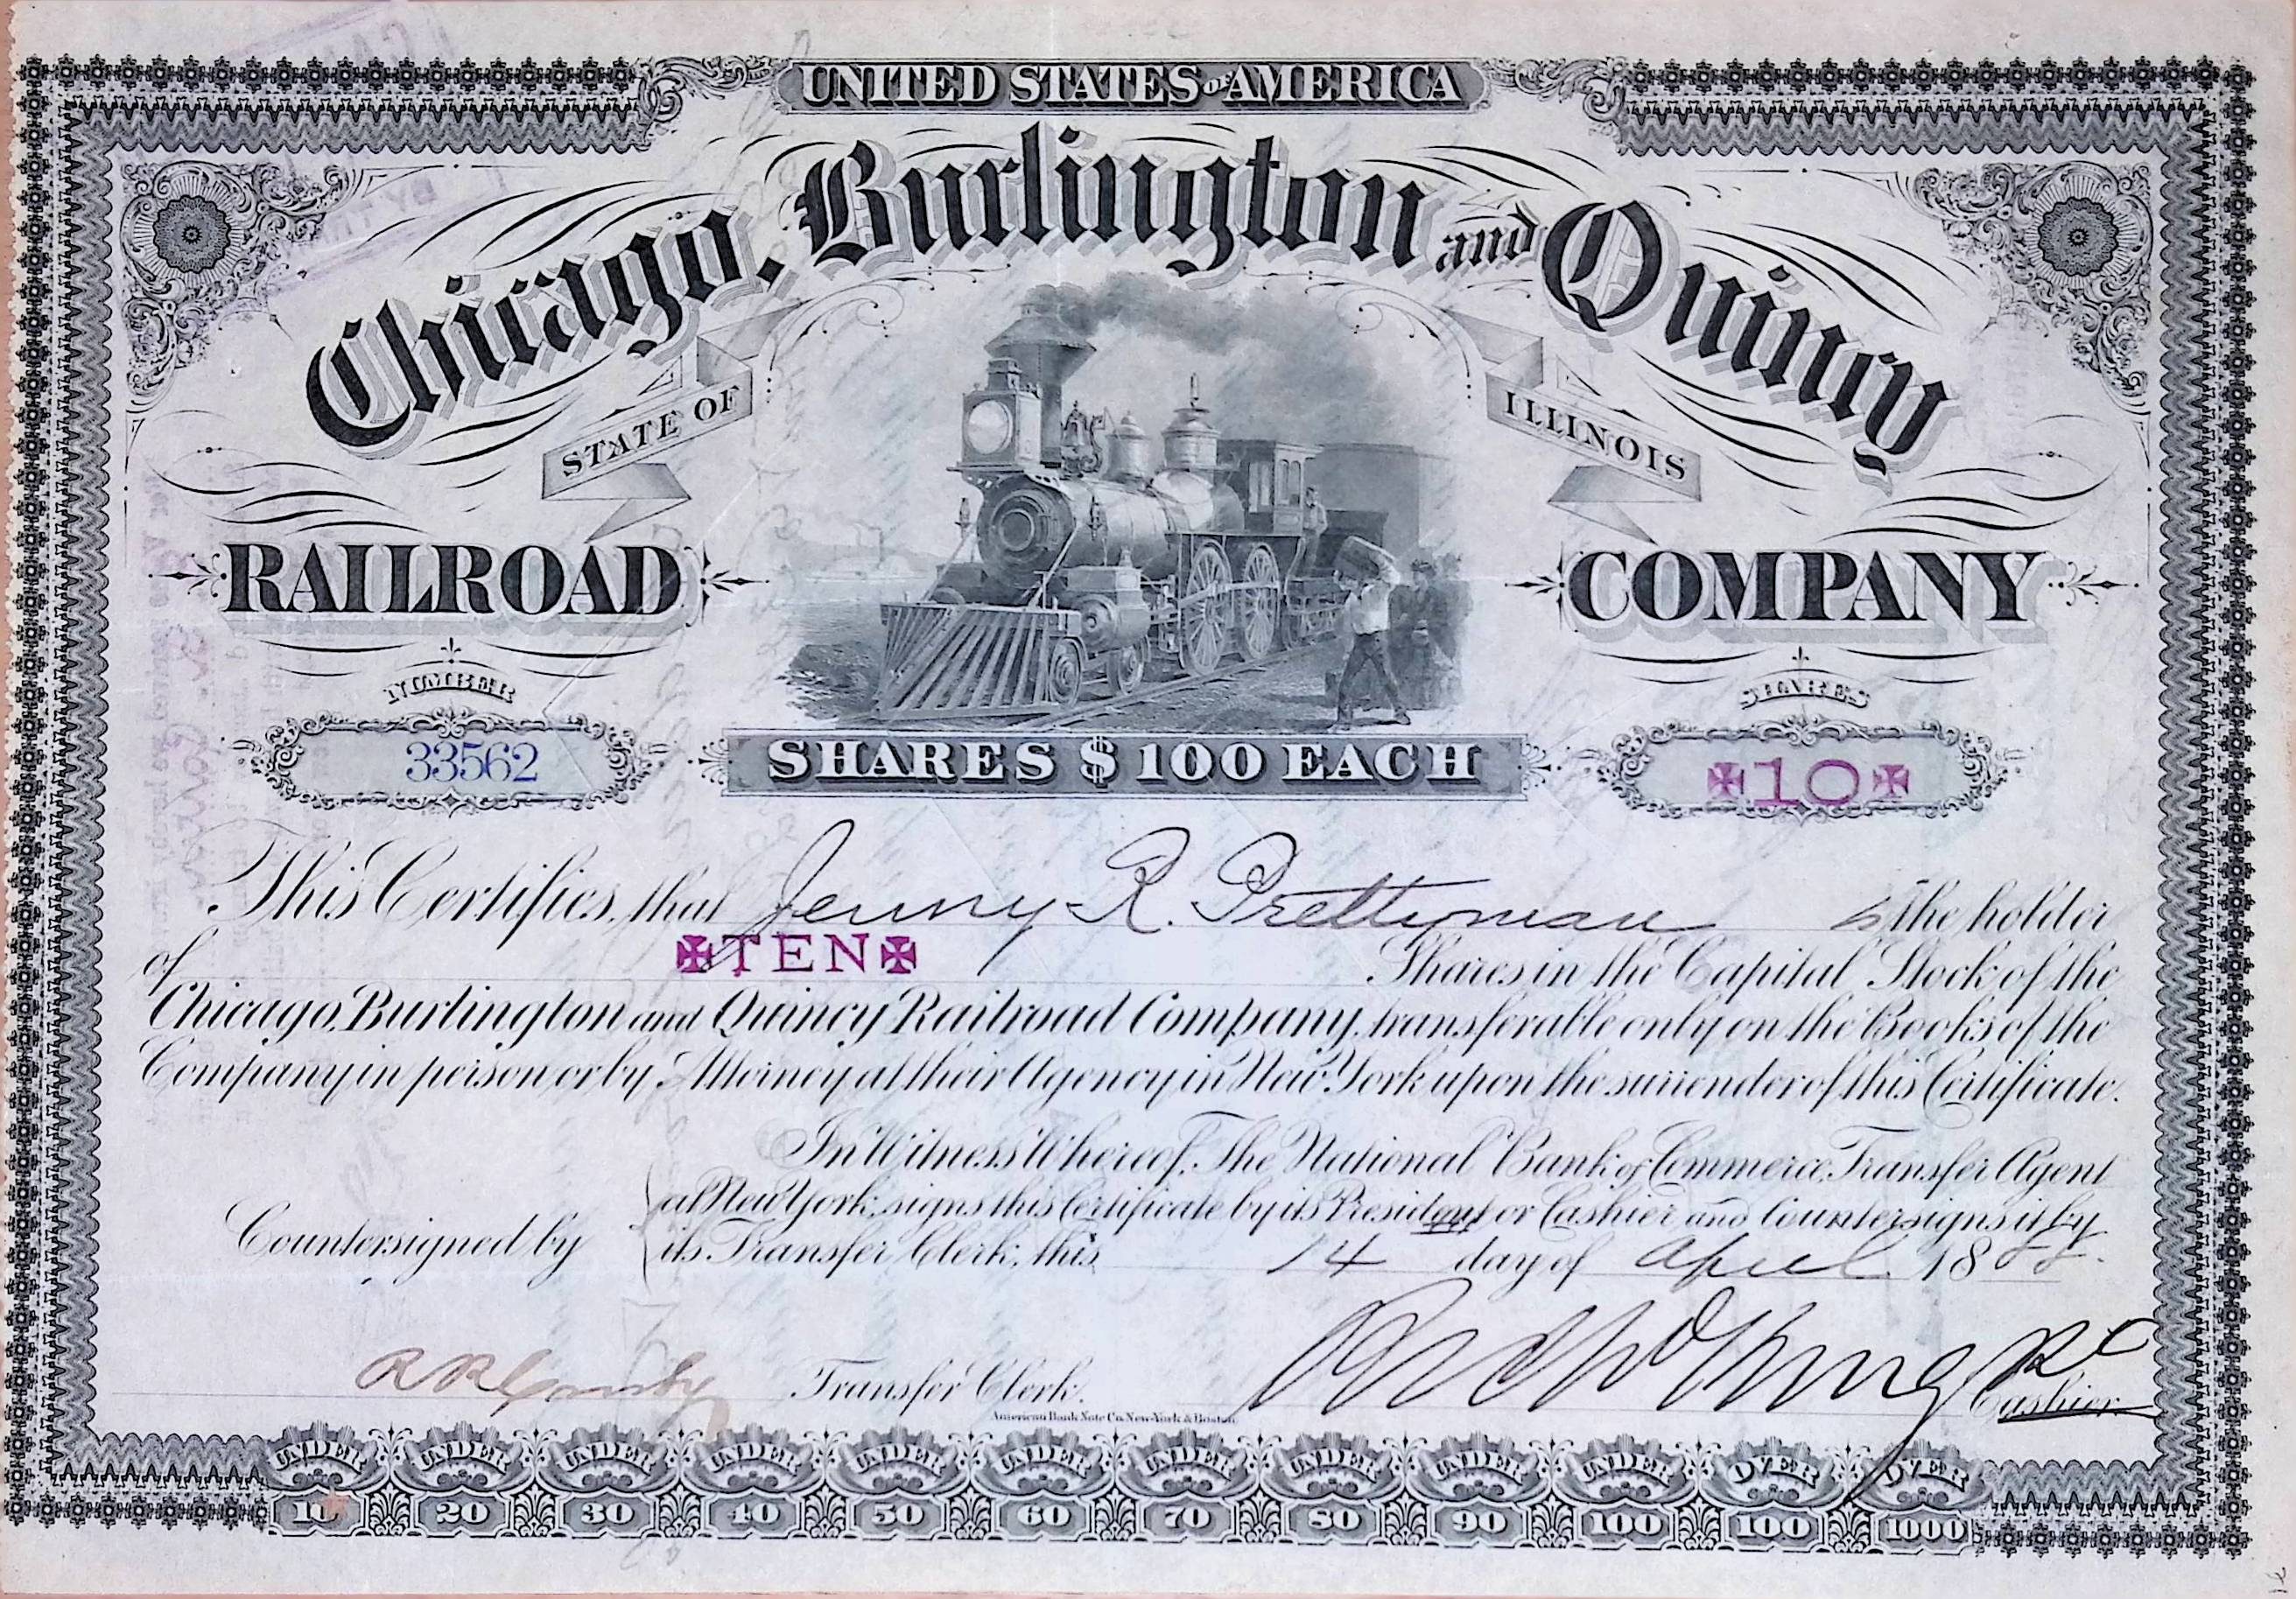 UNITED STATES OF AMERICA
Chicago, Burlington and Quincy
STATE OF ILLINOIS
RAILROAD COMPANY
NUMBER SHARES
33562 SHARES $100 EACH ✠10✠
This Certifies, that Jenny R. Prettyman is the holder
of ✠TEN✠ Shares in the Capital Stock of the
Chicago, Burlington and Quincy Railroad Company, transferable only on the Books of the
Company in person or by Attorney at their Agency in New York upon the surrender of this Certificate.
In Witness Whereof, The National Bank of Commerce, Transfer Agent
at New York, signs this Certificate by its President or Cashier and Countersigns it by
Countersigned by its Transfer Clerk, this 14 day of April 1888.
Transfer Clerk. Cashier
American Bank Note Co. New-York & Boston.
UNDER UNDER UNDER UNDER UNDER UNDER UNDER UNDER UNDER UNDER OVER OVER
10 20 30 40 50 60 70 80 90 100 100 1000